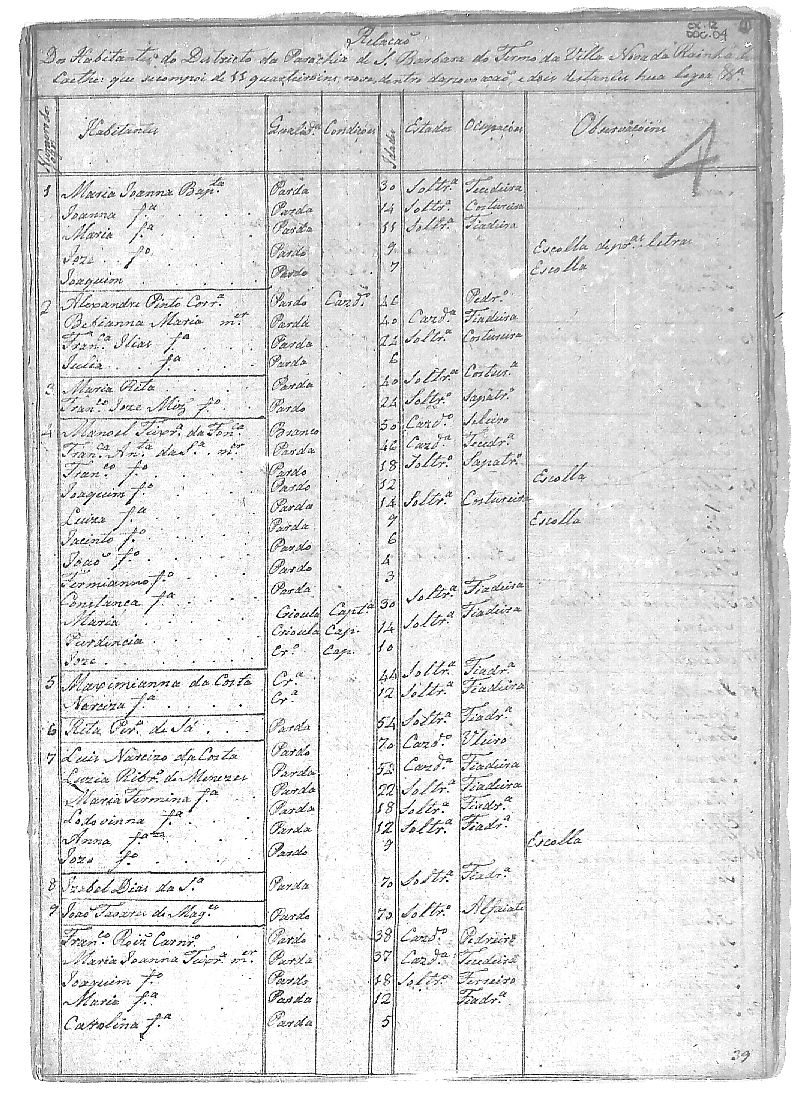 CX. 12
DOC. 04
Relação
Dos Habitantes do Districto da Parochia de S. Barbara do Termo da Villa Nova da Rainha do
Caethe: que se compoi de 11 quarteiroins, nove, dentro da povoação, e dois distantes hua legoa
Habitantes Qualid.es Condições Idades Estados Ocupacões Observacoins
4
1 Maria Joanna Bap.ta Parda 30 Soltr.a Tecedeira
Joanna f.a Parda 14 Soltr.a Costureira
Maria f.a Parda 11 Soltr.a Fiadeira
Joze f.o Pardo 9 Escolla de pr.as letras
Joaquim Pardo 7 Escolla
2 Alexandre Pinto Corr.a Pardo Cazd.o 46 Pedr.o
Bebianna Maria m.er Parda 40 Cazd.a Fiadeira
Fran.ca Ilias f.a Parda 24 Soltr.a Costureira
Julia f.a Parda 6
3 Maria Rita Parda 40 Soltr.a Costur.a
Fran.co Joze Miz f.o Pardo 24 Soltr.o Sapatr.o
4 Manoel Ferr.a da Fon.ca Branco 50 Cazd.o Seleiro
Fran.ca An.ta da S.a m.er Parda 46 Cazd.a Tecedr.a
Fran.co f.o Pardo 18 Soltr.o Sapatr.o
Joaquim f.o Pardo 12 Escolla
Luiza f.a Parda 14 Soltr.a Costureira
Jacinto f.o Parda 9 Escolla
João f.o Pardo 6
Fermianno f.o Pardo 4
Constanca f.a Parda 3
Maria Crioula Capt.a 30 Soltr.a Fiadeira
Purdencia Crioula Cap. 14 Soltr.a Fiadeira
Joze Cr.o Cap. 10
5 Maximianna da Costa Cr.a 44 Soltr.a Fiadr.a
Narciza f.a Cr.a 12 Soltr.a Fiadeira
6 Rita Per.a de Sá Parda 54 Soltr.a Fiadr.a
7 Luis Narcizo da Costa Pardo 70 Cazd.o
Luzia Ribr.o de Menezes Parda 54 Cazd.a Fiadeira
Maria Fermina f.a Parda 22 Soltr.a Fiadeira
Lodovinna f.a Parda 18 Soltr.a Fiadr.a
Anna f.a Parda 12 Soltr.a Fiadr.a
Joze f.o Pardo 9 Escolla
8 Izabel Dias da S.a Parda 70 Soltr.a Fiadr.a
9 João Tavares de Mag.es Pardo 70 Soltr.o Alfaiate
Fran.co Roiz Carnr.o Pardo 38 Cazd.o Pedreiro
Maria Joanna Ferr.a m.er Parda 37 Cazd.a Tecedeira
Joaquim f.o Pardo 18 Soltr.o Ferreiro
Maria f.a Parda 12 Fiadr.a
Carolina f.a Parda 5
39